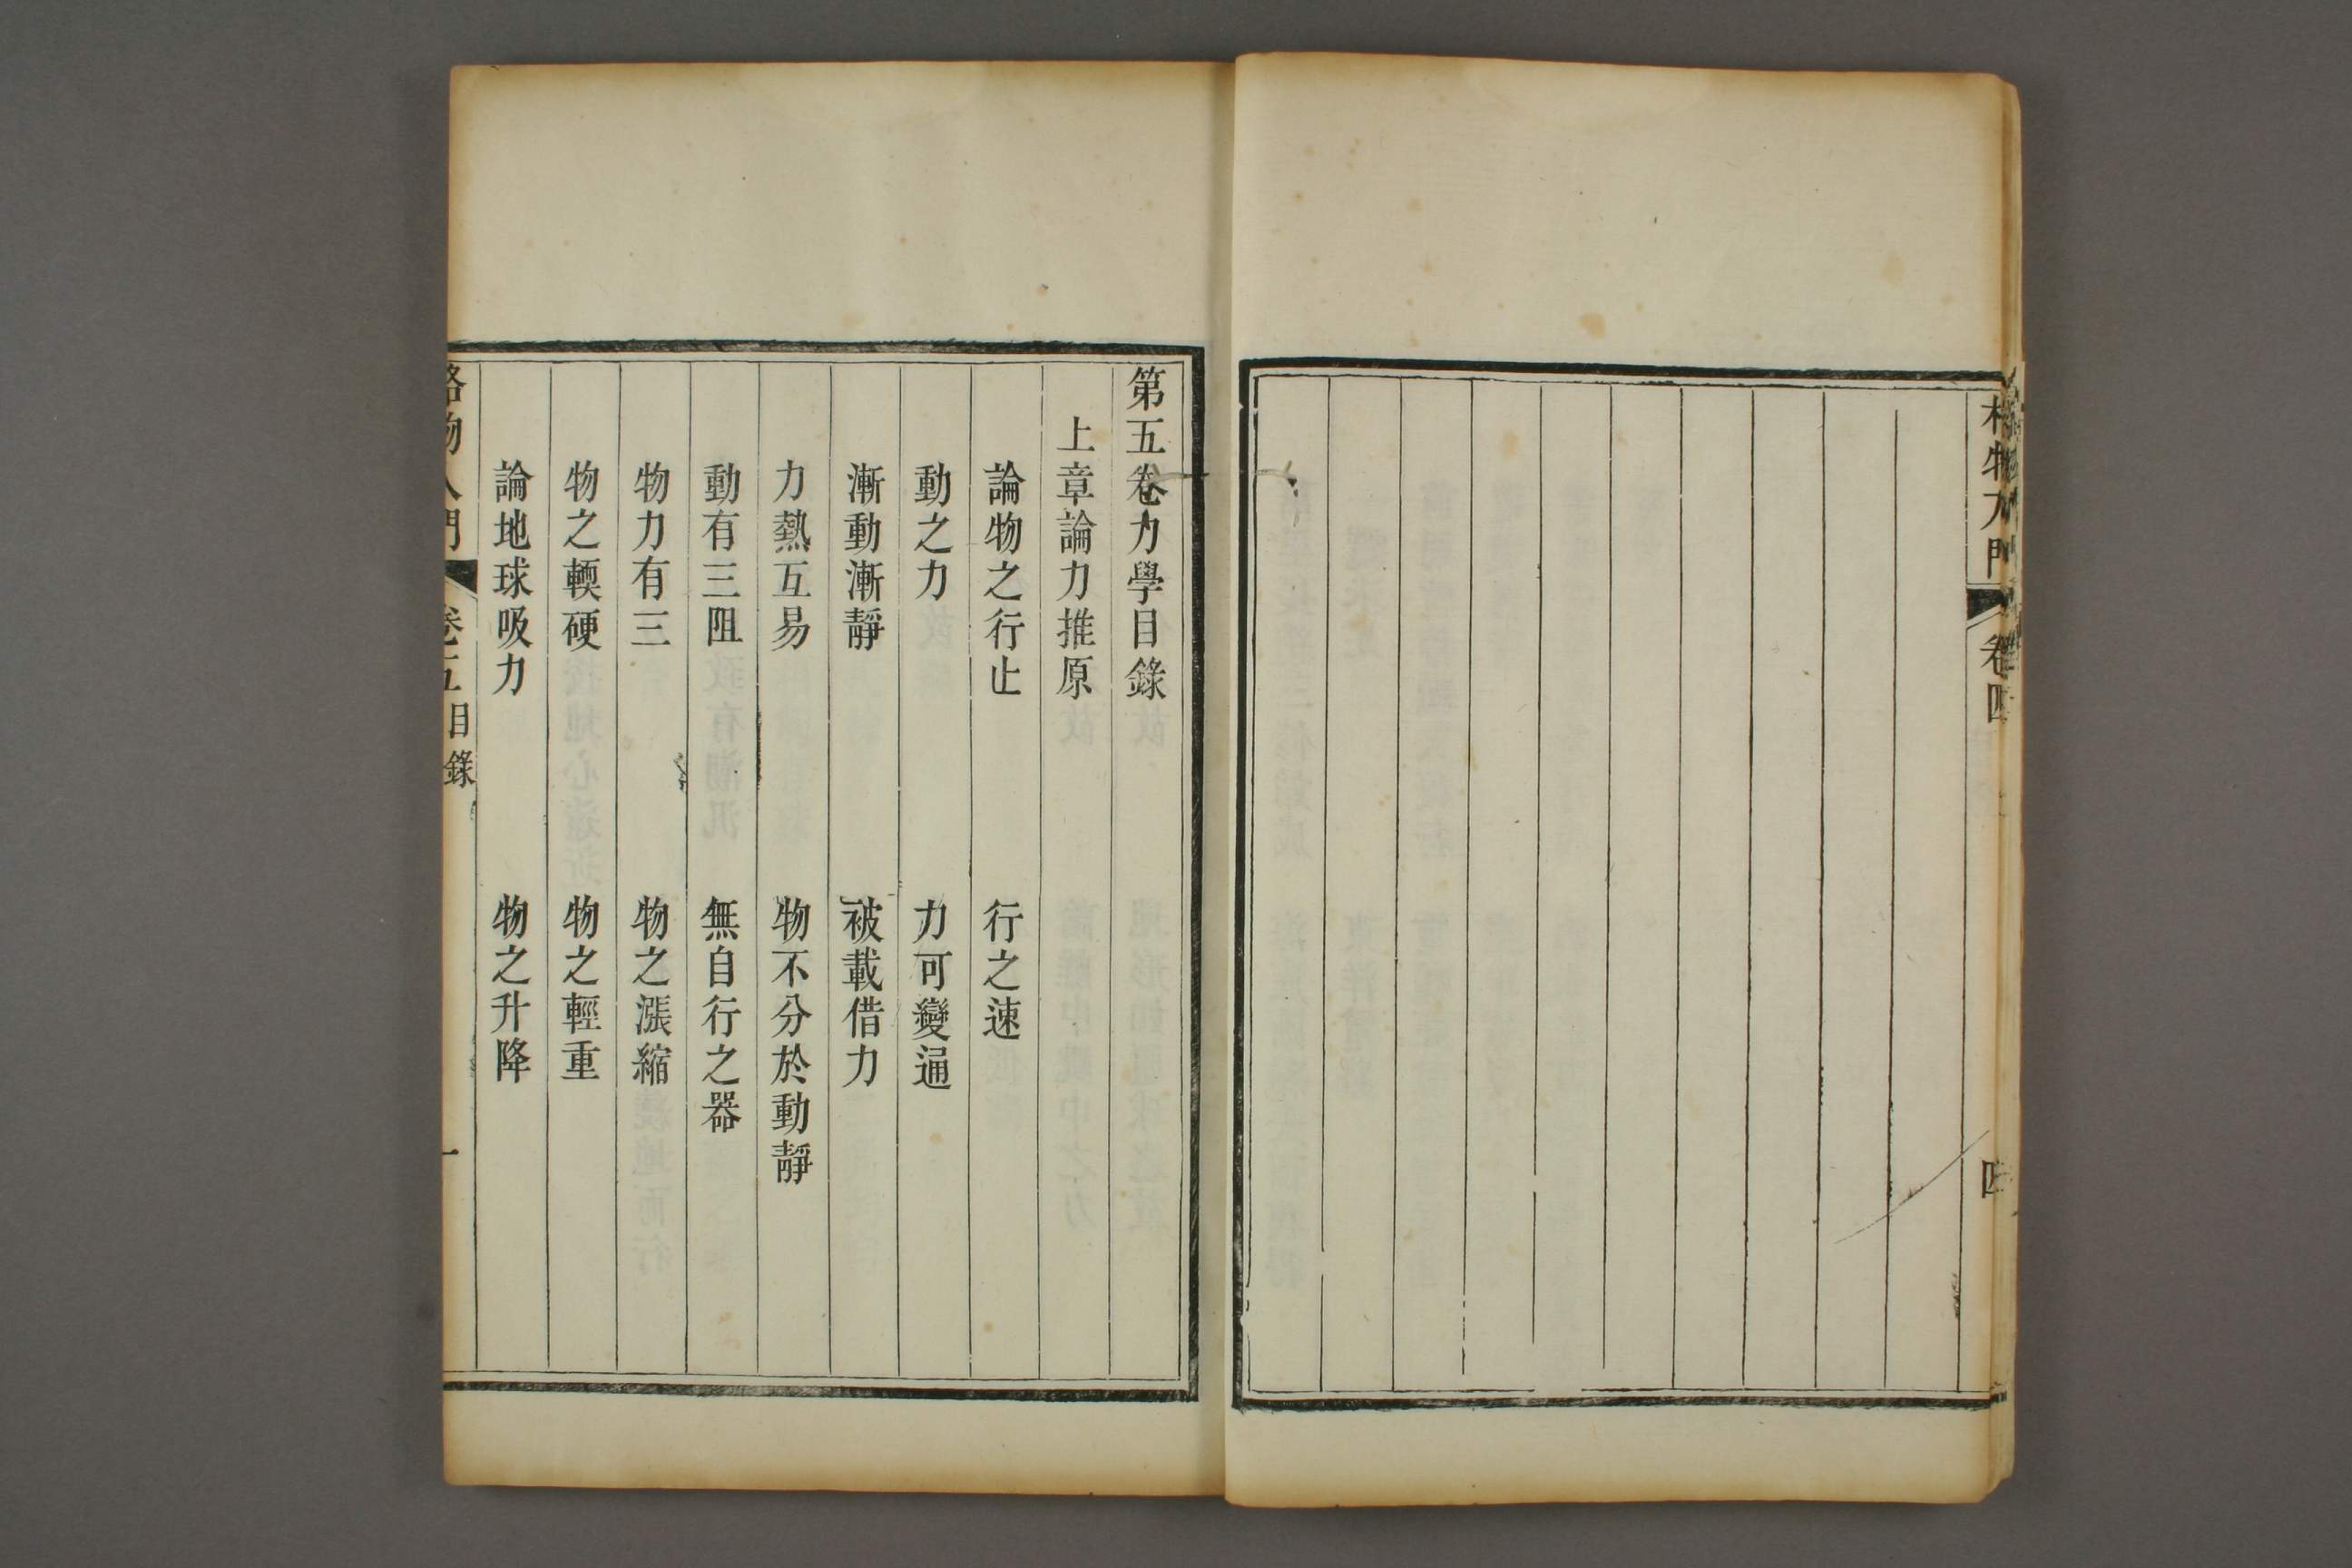 格物入門 卷四 四
第五卷力學目錄
上章論力推原
論物之行止 行之速
動之力 力可變通
漸動漸靜 被載借力
力熱互易 物不分於動靜
動有三阻 無自行之器
物力有三 物之漲縮
物之輭硬 物之輕重
論地球吸力 物之升降
格物入門 卷五目錄 一